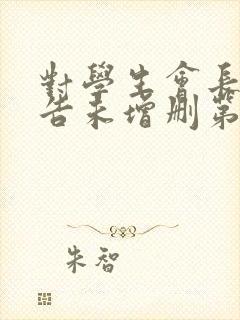 對學生會長
告未增刪第
朱智